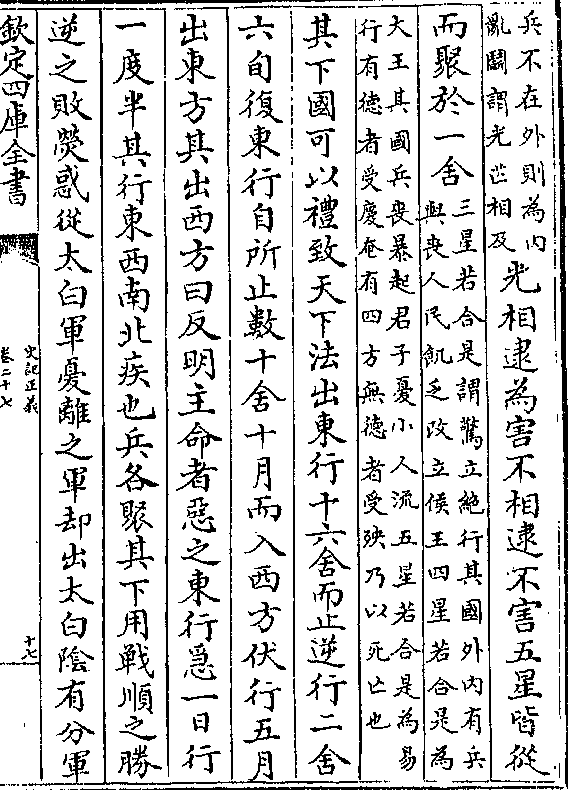 兵不在外則為内
亂鬭謂光芒相及
光相逮為害不相逮不害五星皆從
而聚於一舍
三星若合是謂驚立絶行其國外内有兵
與喪人民飢乏改立侯王四星若合是為
大王其國兵喪暴起君子憂小人流五星若合是為易
行有德者受慶奄有四方無德者受殃乃以死亡也
其下國可以禮致天下法出東行十六舍而止逆行二舍
六旬復東行自所止數十舍十月而入西方伏行五月
出東方其出西方曰反明主命者惡之東行急一日行
一度半其行東西南北疾也兵各聚其下用戰順之勝
逆之敗熒惑從太白軍憂離之軍却出太白陰有分軍
欽定四庫全書
史記正義
卷二十七
十七